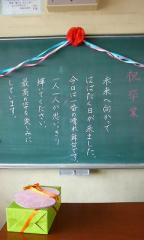 祝卒業
未来へ向かって
はばたく日が来ました。
今日は一番の晴れ舞台です。
一人一人が思いっきり
輝いてください。
最高の姿を楽しみに
しています。